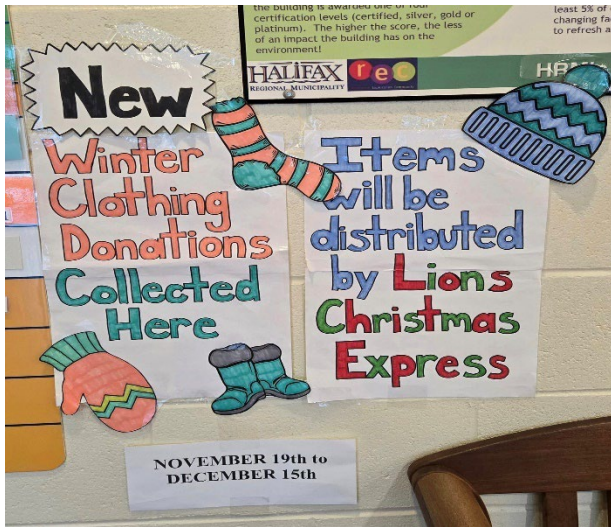 the building is awarded one of four
certification levels (certified, silver, gold or
platinum). The higher the score, the less
of an impact the building has on the
environment!
least 5% of
changing fa
to refresh a
HALIFAX
REGIONAL MUNICIPALITY
rec
New
Winter
Clothing
Donations
Collected
Here
Items
will be
distributed
by Lions
Christmas
Express
NOVEMBER 19th to
DECEMBER 15th